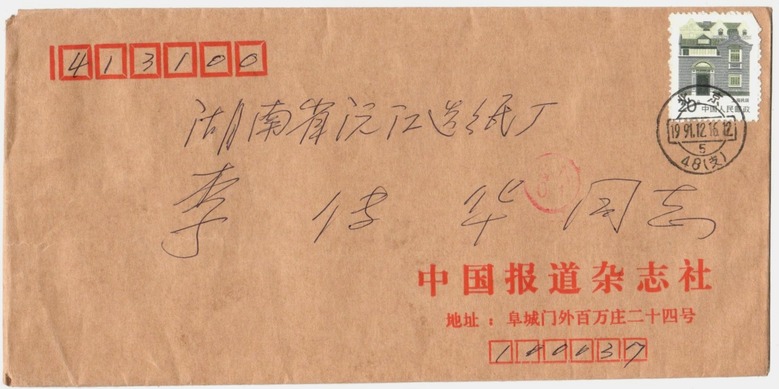 413100
20
中国人民邮政
北京
1991.12.16.12
5
48(支)
湖南省沅江造纸厂
李传华同志
中国报道杂志社
地址：阜城门外百万庄二十四号
100037